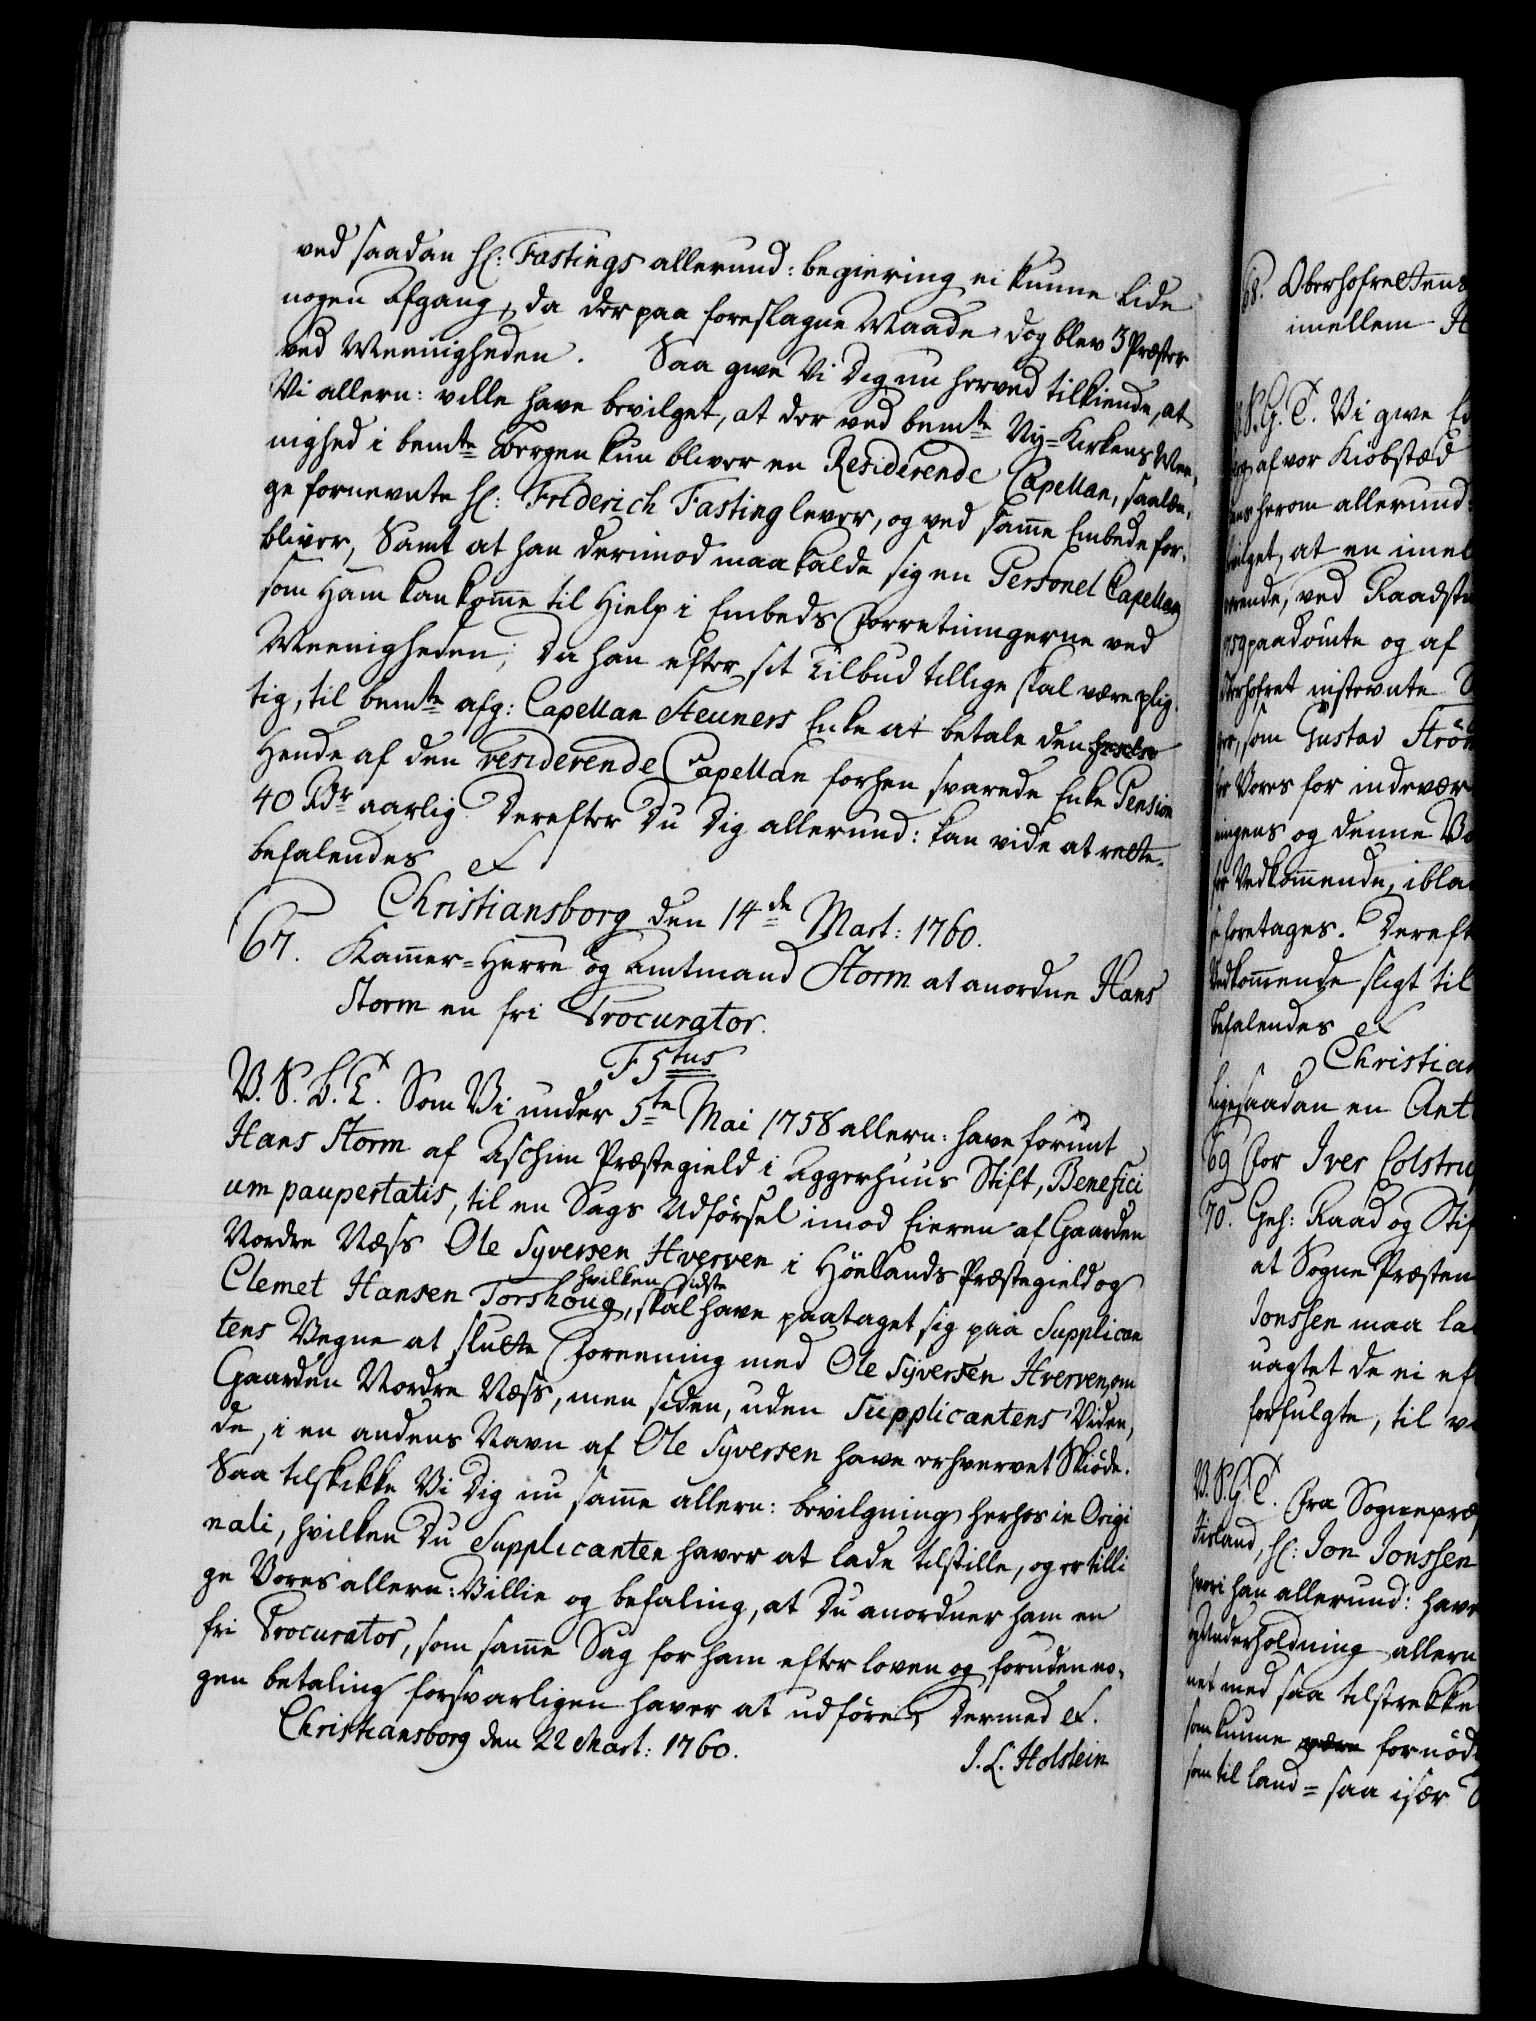 ved saadan Hl: Fastings allerund: begiering ei kunne lide
nogen Afgang, da der paa foreslagne Maade dog blev 3 Præster
ved Meenigheden. Saa give Vi Dig nu herved tilkiende, at
Vi allern: ville have bevilget, at der ved bemte Ny-Kirkens Mee-
nighed i bemte Bergen kun bliver en Residerende Capellan, saalæn-
ge fornevnte Hl: Friderich Fasting lever, og ved samme Embede for-
bliver, Samt at han derimod maa kalde sig en Personel Capellan
som Ham kan komme til Hielp i Embeds Forretningerne ved
Meenigheden; Da han efter sit Tilbud tillige skal være plig-
tig, til bemte afg: Capellan Steuners Enke at betale den
Hende af den residerende Capellan forhen svarede Enke Pension
40 Rdr aarlig. Derefter Du Dig allerund: kan vide at rette.
befalendes &
Christiansborg den 14de Mart: 1760.
67. Kammer-Herre og Amtmand Storm at anordne Hans
Storm en fri Procurator.
F5tus
V. S. B. T. Som Vi under 5te Mai 1758 allern: have forunt
Hans Storm af Aschim Præstegield i Aggerhuus Stift, Benefici
um paupertatis, til en Sags Udførsel imod Eieren af Gaarden
Nordre Næss Ole Syversen Hverven i Höelands Præstegield og
Clemet Hansen Torshoug, hvilken sidste skal have paataget sig paa Supplican
tens Vegne at slutte Foreening med Ole Syversen Hverven, om
Gaarden Nordre Næss, men siden, uden Supplicantens Viden-
de, i en andens Navn af Ole Syversen have erhvervet Skiöde.
Saa tilskikke Vi Dig nu samme allern: bevilgning herhos in Origi
nali, hvilken Du Supplicanten haver at lade tilstille, og er tilli
ge Vores allern: Villie og befaling, at Du anordner ham en
fri Procurator, som samme Sag for ham efter loven og foruden no-
gen betaling forsvarligen haver at udføre, Dermed &.
Christiansborg den 22 Mart: 1760.
J. L. Holstein
68. Oberhofrettens
imellem
V. S. G. T. Vi give
af vor Kiöbstæd
herom allerund:
at en imel
ved Raadst
paadömte og af
indstevnte
som Gustav Strö
Vores for indevær
og denne
Vedkommende, ibla
foretages. Dereft
Vedkommende sligt til
befalendes &
Christian
Ligesaadan en Ant
69 for Iver Colstru
70. Geh: Raad og Stif
at Sogne Præsten
Jonssen maa la
uagtet de ei ef
forfulgte, til
V. S. G. T. Fra Sognepræ
Hl: Jon Jonssen
hvori han allerund: have
Underholdning allern
med saa tilstrekke
som kunne være fornöd
som til land- saa især